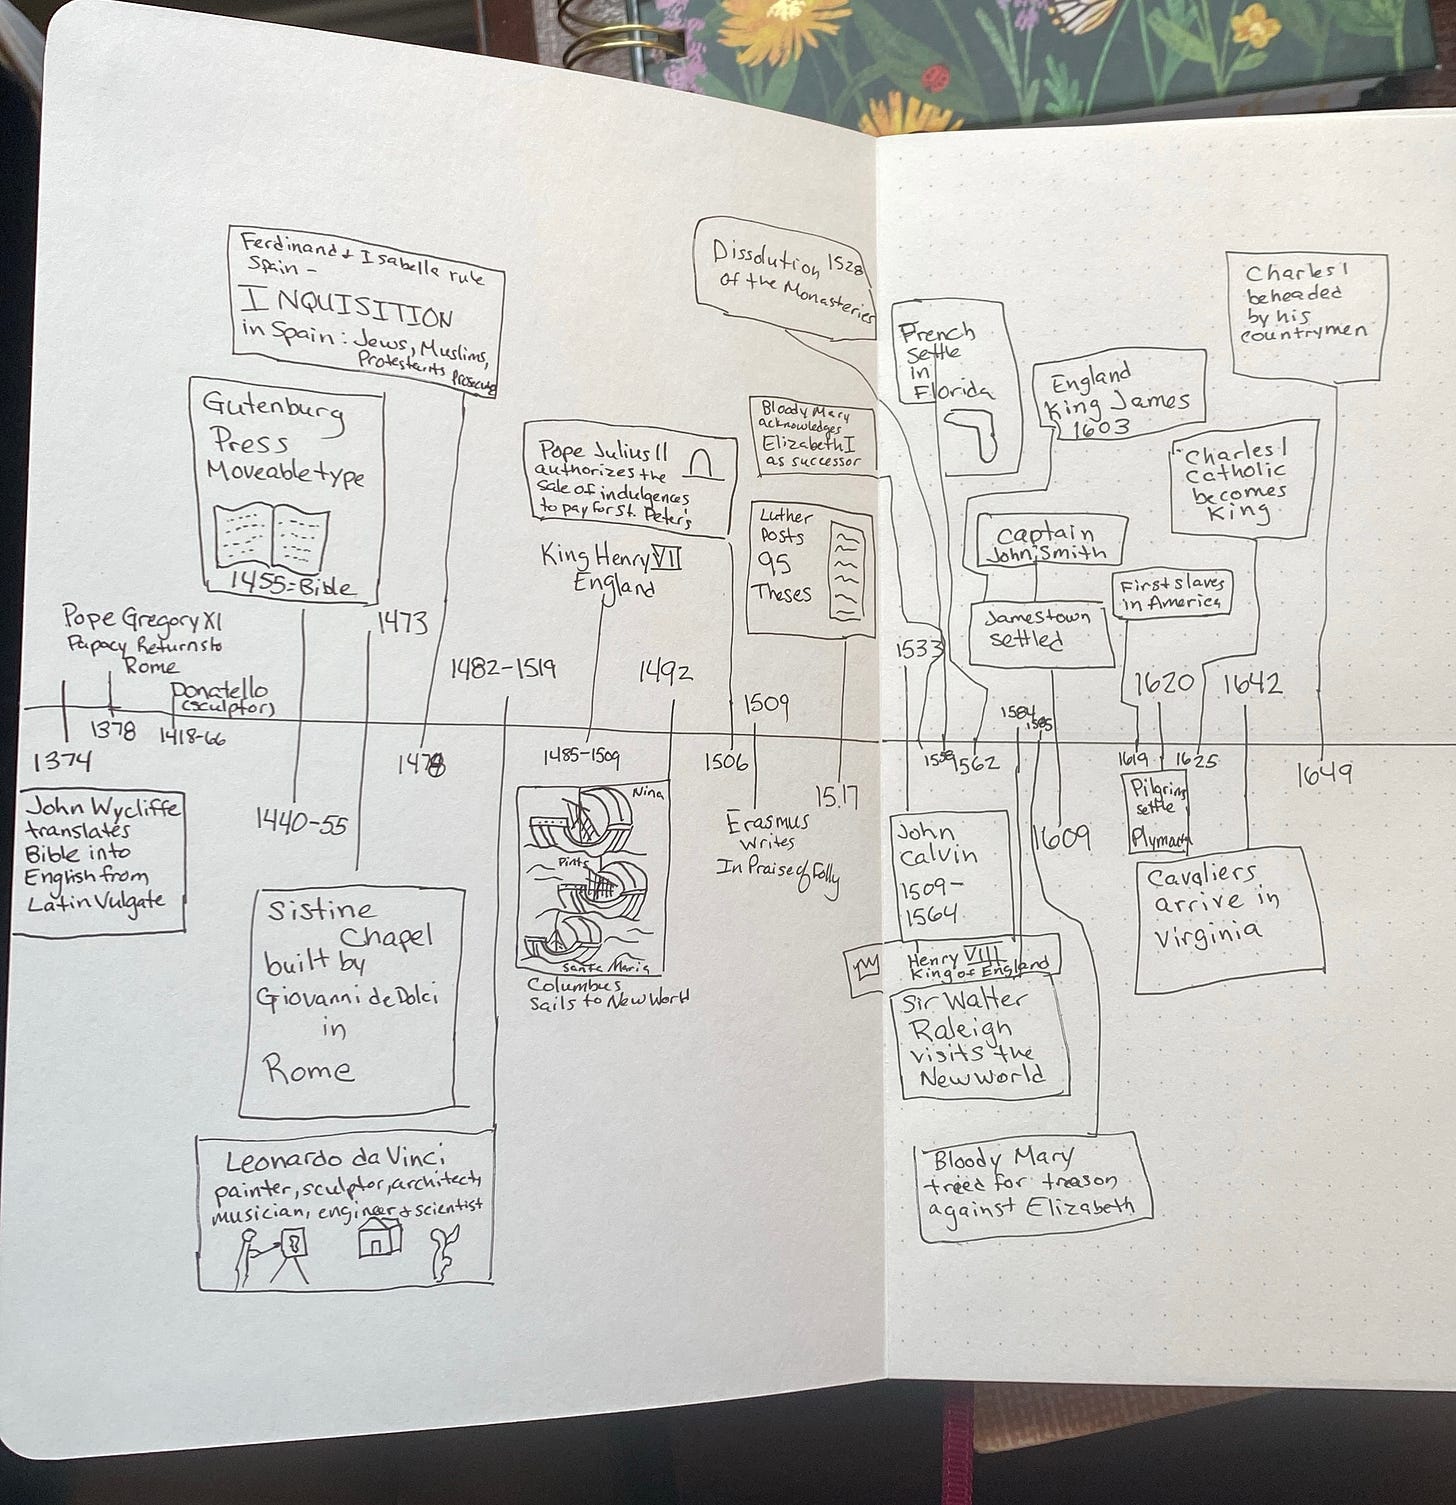 Ferdinand & Isabella rule
Spain -
INQUISITION
in Spain: Jews, Muslims,
Protestants
Gutenburg
Press
Moveable type
1455=Bible
Pope Gregory XI
Papacy Returns to
Rome
Donatello
(sculptor)
1374
1378
1418-66
John Wycliffe
translates
Bible into
English from
Latin Vulgate
1440-55
1473
1482-1519
Sistine
Chapel
built by
Giovanni de Dolci
in
Rome
Leonardo da Vinci
painter, sculptor, architect,
musician, engineer & scientist
Pope Julius II
authorizes the
sale of indulgences
to pay for St. Peter's
King Henry VII
England
1485-1509
1492
Nina
Pinta
Santa Maria
Columbus
Sails to New World
1506
1509
Erasmus
writes
In Praise of Folly
Dissolution 1528
of the Monasteries
Bloody Mary
acknowledges
Elizabeth I
as successor
Luther
Posts
95
Theses
1517
French
settle
in
Florida
England
King James
1603
Charles I
beheaded
by his
countrymen
Charles I
Catholic
becomes
King
Captain
John Smith
Jamestown
settled
First slaves
in America
1533
1562
1584
1585
1609
1619
1620
1625
1642
1649
John
Calvin
1509-
1564
Henry VIII
King of England
Sir Walter
Raleigh
visits the
New World
Pilgrims
settle
Plymouth
Cavaliers
arrive in
Virginia
Bloody Mary
tried for treason
against Elizabeth